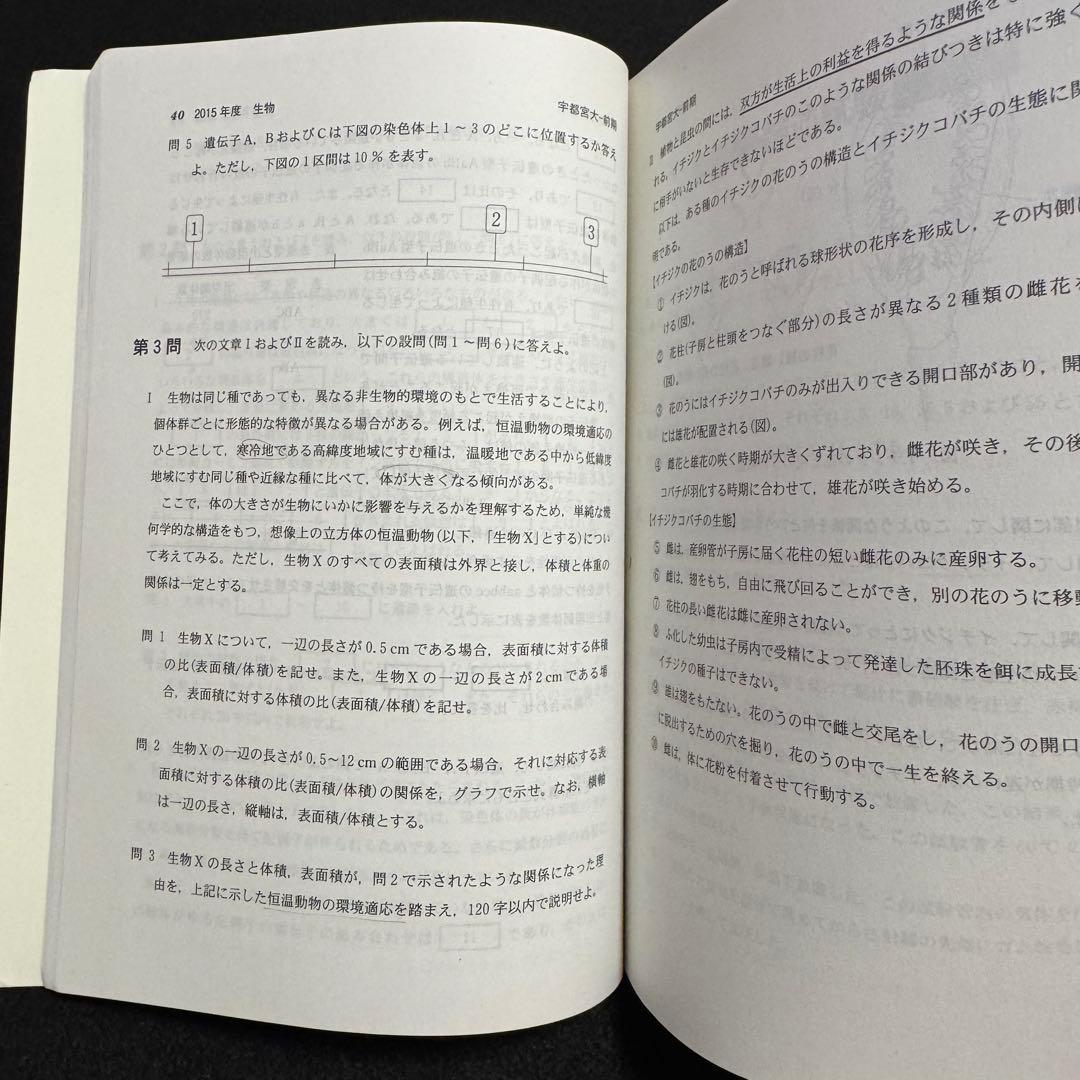 40 2015年度 生物
宇都宮大-前期
問 5 遺伝子A，BおよびCは下図の染色体上1～3のどこに位置するか答え
よ。ただし，下図の1区間は10％を表す。
1
2
3
第3問 次の文章ⅠおよびⅡを読み，以下の設問(問1～問6)に答えよ。
Ⅰ 生物は同じ種であっても，異なる非生物的環境のもとで生活することにより，
個体群ごとに形態的な特徴が異なる場合がある。例えば，恒温動物の環境適応の
ひとつとして，寒冷地である高緯度地域にすむ種は，温暖地である中から低緯度
地域にすむ同じ種や近縁な種に比べて，体が大きくなる傾向がある。
ここで，体の大きさが生物にいかに影響を与えるかを理解するため，単純な幾
何学的な構造をもつ，想像上の立方体の恒温動物(以下，「生物X」とする)につい
て考えてみる。ただし，生物Xのすべての表面積は外界と接し，体積と体重の
関係は一定とする。
問 1 生物Xについて，一辺の長さが0.5cmである場合，表面積に対する体積
の比(表面積/体積)を記せ。また，生物Xの一辺の長さが2cmである場
合，表面積に対する体積の比(表面積/体積)を記せ。
問 2 生物Xの一辺の長さが0.5～12cmの範囲である場合，それに対応する表
面積に対する体積の比(表面積/体積)の関係を，グラフで示せ。なお，横軸
は一辺の長さ，縦軸は，表面積/体積とする。
問 3 生物Xの長さと体積，表面積が，問2で示されたような関係になった理
由を，上記に示した恒温動物の環境適応を踏まえ，120字以内で説明せよ。
宇都宮大-前期
Ⅱ 植物と昆虫の間には，双方が生活上の利益を得るような関係を
れる。イチジクとイチジクコバチのこのような関係の結びつきは特に強く
に相手がいないと生存できないほどである。
以下は，ある種のイチジクの花のうの構造とイチジクコバチの生態に関
明である。
【イチジクの花のうの構造】
① イチジクは，花のうと呼ばれる球形状の花序を形成し，その内側に
ける(図)。
② 花柱(子房と柱頭をつなぐ部分)の長さが異なる2種類の雌花を
(図)。
③ 花のうにはイチジクコバチのみが出入りできる開口部があり，開
には雄花が配置される(図)。
④ 雌花と雄花の咲く時期が大きくずれており，雌花が咲き，その後
コバチが羽化する時期に合わせて，雄花が咲き始める。
【イチジクコバチの生態】
⑤ 雌は，産卵管が子房に届く花柱の短い雌花のみに産卵する。
⑥ 雌は，翅をもち，自由に飛び回ることができ，別の花のうに移動
⑦ 花柱の長い雌花は雌に産卵されない。
⑧ ふ化した幼虫は子房内で受精によって発達した胚珠を餌に成長
イチジクの種子はできない。
⑨ 雄は翅をもたない。花のうの中で雌と交尾をし，花のうの開口
に脱出するための穴を掘り，花のうの中で一生を終える。
⑩ 雌は，体に花粉を付着させて行動する。